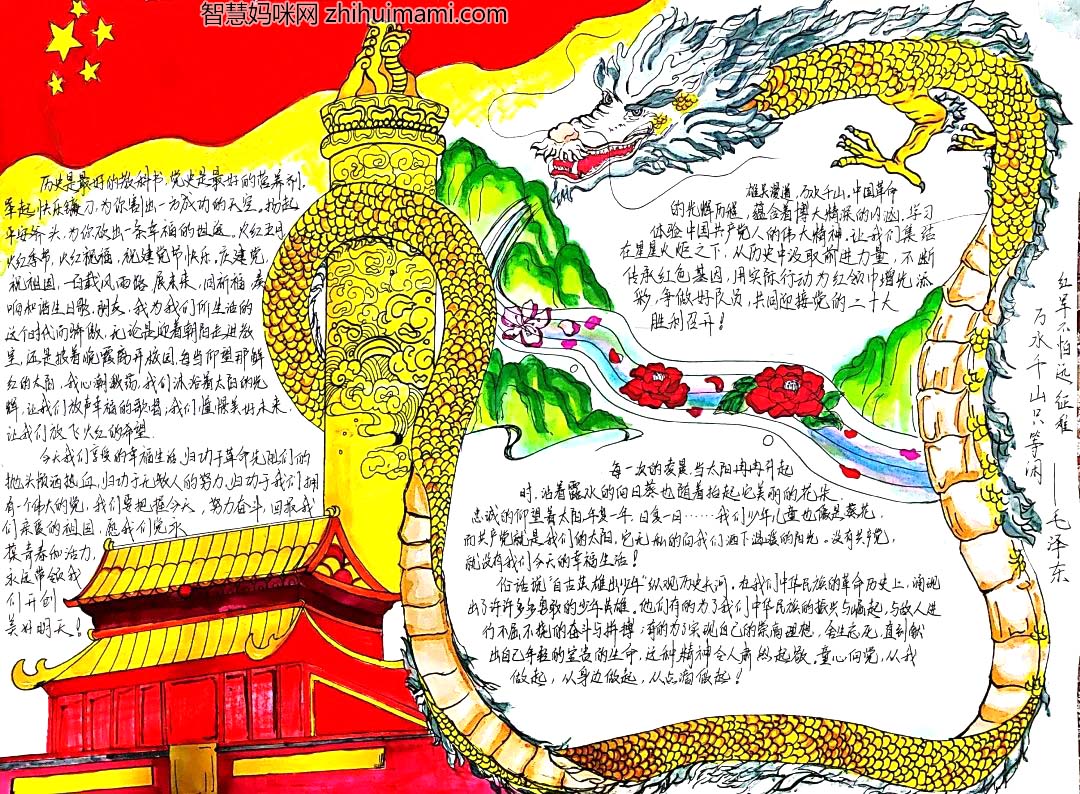 智慧妈咪网 zhihuimami.com
历史是最好的教科书,党史是最好的营养剂。
举起快乐镰刀,为你割出一方成功的天空。扬起
平安斧头,为你砍出一条幸福的坦途。火红五月
火红季节,火红祝福,祝建党节快乐。庆建党,
祝祖国,一百载风雨路,展未来,同祈福,奏
响和谐生日歌。朋友,我为我们所生活的
这个时代而骄傲,无论是迎着朝阳走进教
室,还是披着晚霞离开校园,每当仰望那鲜
红的太阳,我心潮激荡。我们沐浴着太阳的光
辉,让我们放声幸福的歌唱,我们憧憬美好未来,
让我们放飞火红的希望.
今天我们享受的幸福生活,归功于革命先烈们的
抛头颅洒热血,归功于无数人的努力,归功于我们拥
有个伟大的党,我们要把握今天,努力奋斗,回报我
们亲爱的祖国,愿我们党永
葆青春和活力,
永远带领我
们开创
美好明天!
雄关漫道,万水千山。中国革命
的光辉历程,蕴含着博大精深的内涵,学习
体验中国共产党人的伟大精神,让我们集结
在星星火炬之下,从历史中汲取前进力量,不断
传承红色基因,用实际行动为红领巾增光添
彩,争做好队员,共同迎接党的二十大
胜利召开!
每一次的凌晨,当太阳冉冉升起
时,沾着露水的向日葵也随着抬起它美丽的花朵.
忠诚的仰望着太阳,年复一年,日复一日……我们少年儿童也像是葵花,
而共产党就是我们的太阳,它无私的向我们洒下温暖的阳光。没有共产党,
就没有我们今天的幸福生活!
俗话说"自古英雄出少年"纵观历史长河,在我们中华民族的革命历史上,涌现
出了许许多多勇敢的少年英雄。他们有的为了我们中华民族的振兴与崛起,与敌人进
行不屈不挠的奋斗与拼搏;有的为了实现自己的崇高理想,舍生忘死,直到献
出自己年轻的宝贵的生命,这种精神令人肃然起敬。童心向党,从我
做起,从身边做起,从点滴做起!
红军不怕远征难
万水千山只等闲
——毛泽东